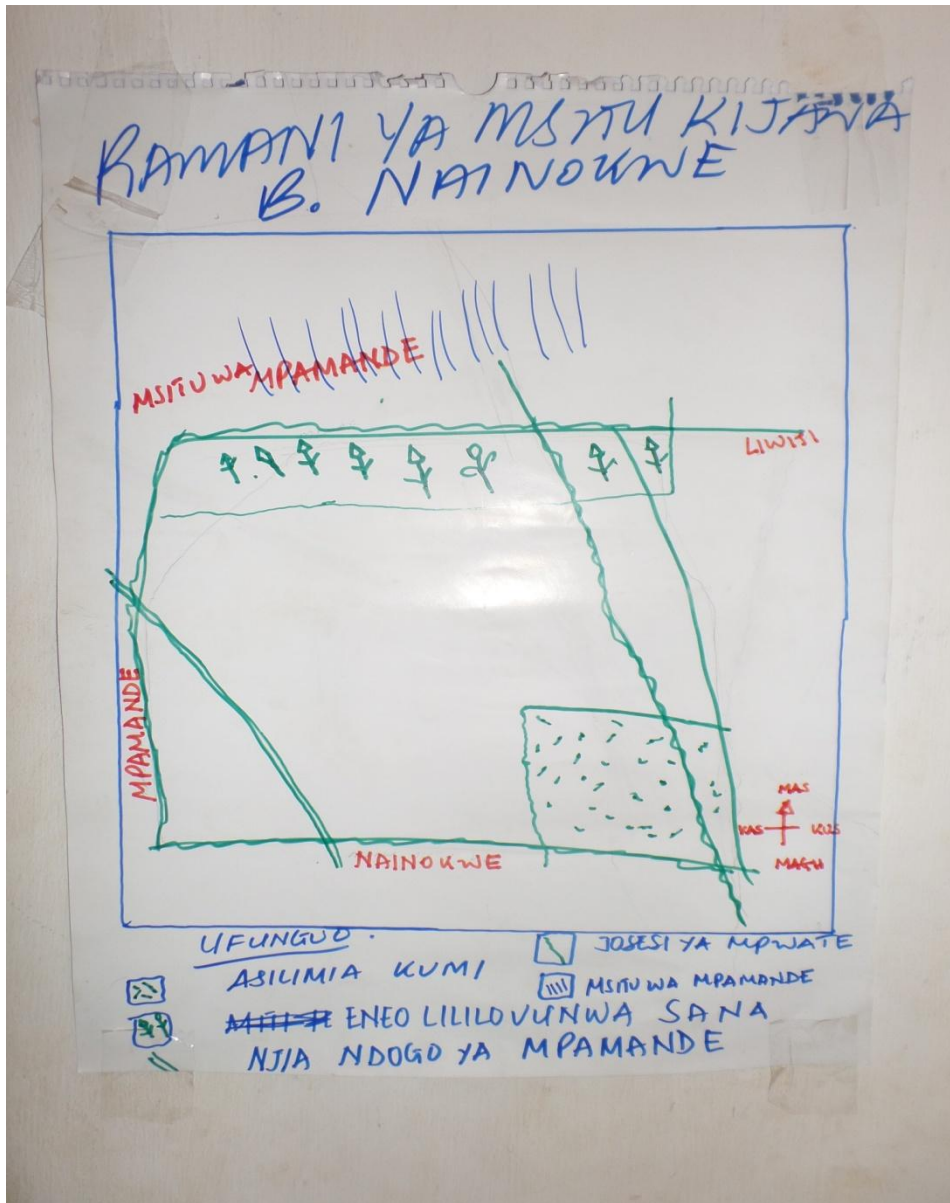 RAMANI YA MSITU KIJANA
B. NAINOKWE
MSITU WA MPAMANDE
LIWITI
MPAMANDE
MAS
KAS KUS
MAGH
NAINOKWE
UFUNGUO.
ASILIMIA KUMI
ENEO LILILOVUNWA SANA
NJIA NDOGO YA MPAMANDE
JOSESI YA MPWATE
MSITU WA MPAMANDE